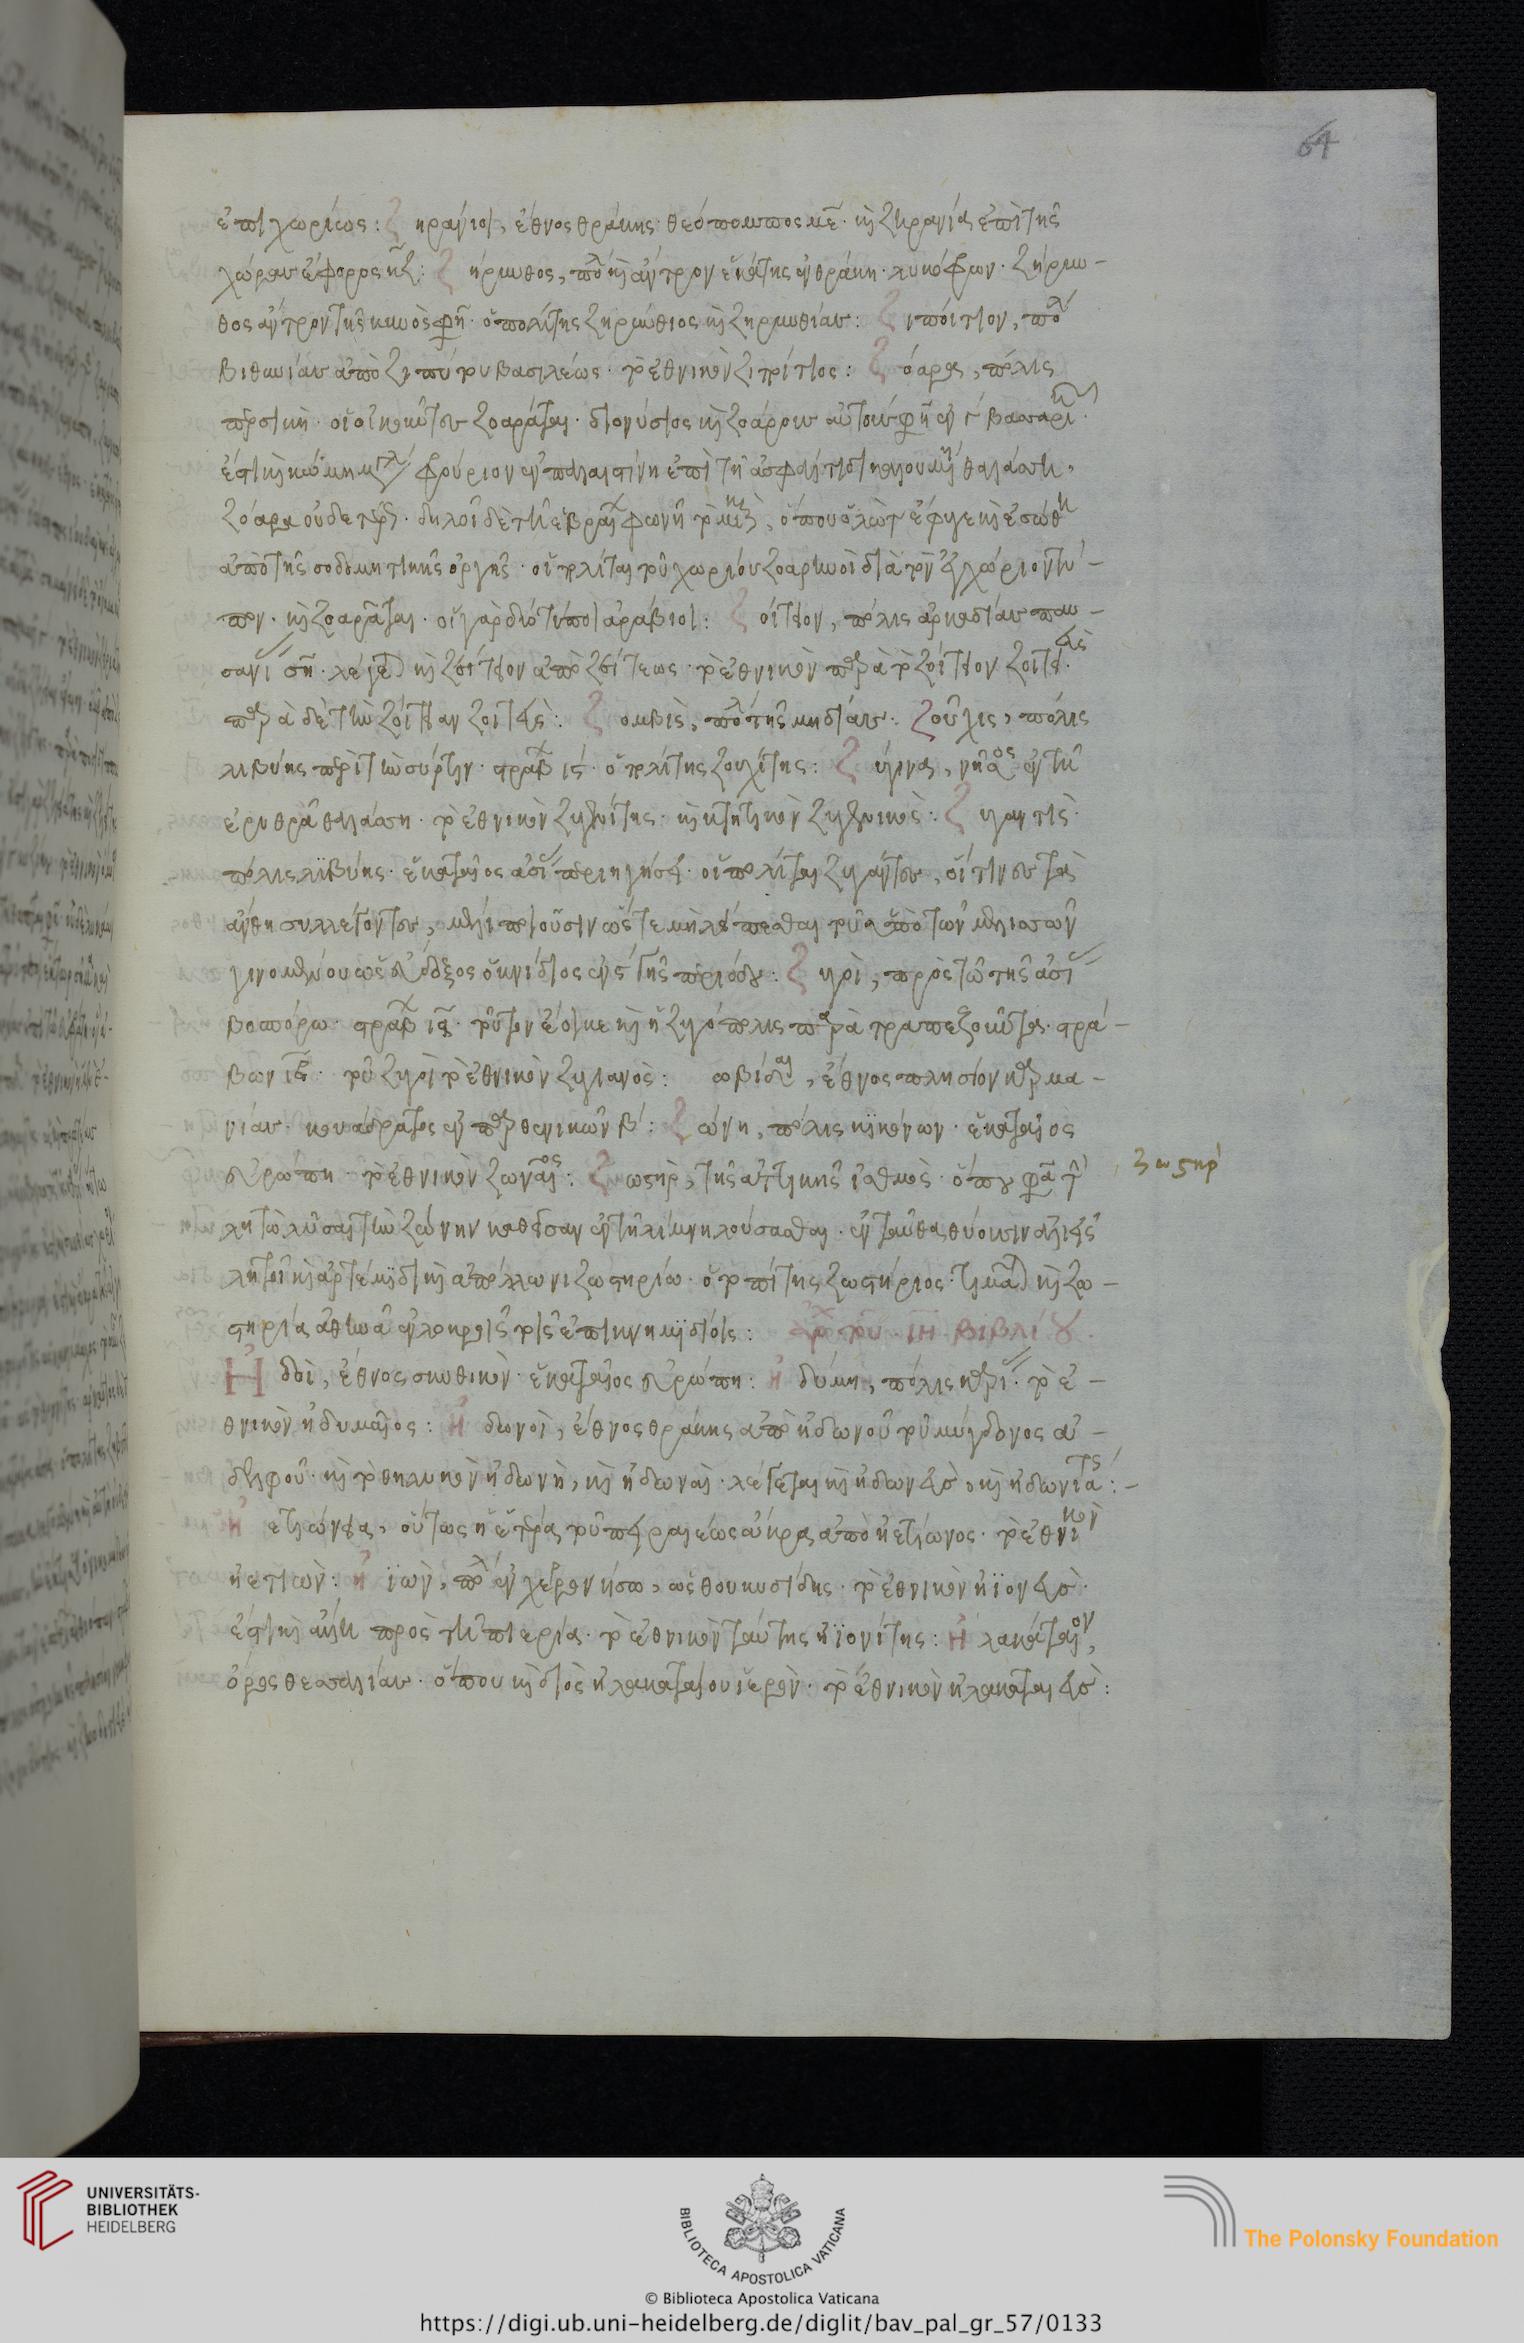 64
ἐπιχωρίως: Ζηράνιοι, ἔθνος θράκης· θεόπομπος με̄· καὶ ζηρανία ἐπὶ τῆς
χώρας ἔφορος
Ζήρυνθος, πό καὶ ἄντρον ἑκάτης ἐν θράκη· λυκόφρων· ζήρυν-
θος ἄντρον τῆς κυνὸς φη· ὁ πολίτης ζηρύνθιος καὶ ζηρυνθίας: Ζιποίτιον, πό
βιθυνίας ἀπὸ ζιποίτου βασιλέως· τὸ ἐθνικὸν ζιποίτιος: Ζόαρα, πόλις
περσική· οἱ οἰκοῦντες ζοαρᾶται· διονύσιος καὶ ζοάρους αὐτούς φη ἐν γ βασσαρι
ἔστι καὶ κώμη μγλ φρούριον ἐν παλαιστίνη ἐπὶ τῆ ἀσφαλτίτιδι καλουμένη θαλάσση,
ζόαρα οὐδετερ· δηλοῖ δὲ τῆ ἑβραι φωνῆ τὸ μικρ, ὅπου ὁ λὼτ ἔφυγε καὶ ἐσώθη
ἀπὸ τῆς σοδομητικῆς ὀργῆς· οἱ πολῖται τοῦ χωρίου ζοαρηνοὶ διὰ τὸν ἐγχώριον τύ-
πον· καὶ ζοαρᾶται· οἱ γὰρ διότυποι ἀράβιοι: Ζοίτιον, πόλις ἀρκαδίας παυ-
σανί ση· λέγε καὶ ζοίτιον ἀπὸ ζοίτεως· τὸ ἐθνικὸν παρὰ τὸ ζοίτιον ζοιτιεὺς
παρὰ δὲ τὴν ζοίτιαν ζοιτεὺς: Ζομβὶς, πό τῆς μηδίας. Ζοῦχις, πόλις
λιβύης περὶ τὴν σύρτην· στραβ ιζ· ὁ πολίτης ζουχίτης: Ζύγαινα, νῆσος ἐν τῆ
ἐρυθρᾶ θαλάσση· τὸ ἐθνικὸν ζυγαινίτης· καὶ κτητικὸν ζυγαινικὸς: Ζυγαντὶς
πόλις λιβύης· ἑκαταῖος ἀσί περιηγήσει· οἱ πολῖται ζύγαντες, οἵτινες τὰ
ἄνθη συλλέγοντες, μέλι ποιοῦσιν ὥστε μὴ λείπεσθαι τοῦ ὑπὸ τῶν μελισσῶν
γινομένου ὡς εὔδοξος ὁ κνίδιος ἐν ϛ τῆς περιόδου: Ζυγοὶ, πρὸς τῶ τῆς ἀσί
βοσπόρω· στραβ ια· τοῦτον ἔοικε καὶ ἡ ζυγόπολις παρὰ τραπεζοῦντα· στρά-
βων ιβ· τοῦ ζυγοὶ τὸ ἐθνικὸν ζυγιανὸς: ωβίδαι, ἔθνος πλησίον καρμα-
νίας· κουάδρατος ἐν παρθενικῶν β: Ζώνη, πόλις κικόνων· ἑκαταῖος
εὐρώπη· τὸ ἐθνικὸν ζωναῖος: Ζωστὴρ, τῆς ἀττικῆς ἰσθμὸς· ὅπου φασὶ τὴν
ζωστήρ
λητὼ λῦσαι τὴν ζώνην καθεῖσαν ἐν τῆ λίμνη λούσασθαι· ἐνταῦθα θύουσιν ἁλιεῖς
λητοῖ καὶ ἀρτέμιδι καὶ ἀπόλλωνι ζωστηρίω· ὁ τοπίτης ζωστήριος· τιμᾶ καὶ ζω-
στηρία ἀθηνᾶ ἐν λοκροῖς τοῖς ἐπικνημιδίοις: ἀρχ τοῦ ιη βιβλίου.
Ἡδοὶ, ἔθνος σκυθικὸν· ἑκαταῖος εὐρώπη: ἡδύμη, πόλις καρι· τὸ ἐ-
θνικὸν ἡδυμαῖος: ἠδωνοὶ, ἔθνος θράκης ἀπὸ ἠδωνοῦ τοῦ μύγδονος ἀ-
δελφοῦ· καὶ τὸ θηλυκὸν ἠδωνὴ, καὶ ἠδωναὶ· λέγεται καὶ ἠδωνεὺς, καὶ ἠδωνιάτς:-
ἠετιώνεια, οὕτως ἡ ἑτέρα τοῦ πειραιέως ἄκρα ἀπὸ ἠετίωνος· τὸ ἐθνικὸν
ἠετιὼν: ἠϊὼν, πὸ ἐν χερρονήσω, ὡς θουκυδίδης· τὸ ἐθνικὸν ἠϊονεὺς·
ἔστι καὶ ἄλλη πρὸς τῆ πιερία· τὸ ἐθνικὸν ταύτης ἠϊονίτης: ἠλακάταιον,
ὄρος θεσσαλίας· ὅπου καὶ διὸς ἠλακαταίου ἱερὸν· τὸ ἐθνικὸν ἠλακαταιεὺς:
UNIVERSITÄTS-
BIBLIOTHEK
HEIDELBERG
BIBLIOTECA APOSTOLICA VATICANA
The Polonsky Foundation
© Biblioteca Apostolica Vaticana
https://digi.ub.uni-heidelberg.de/diglit/bav_pal_gr_57/0133